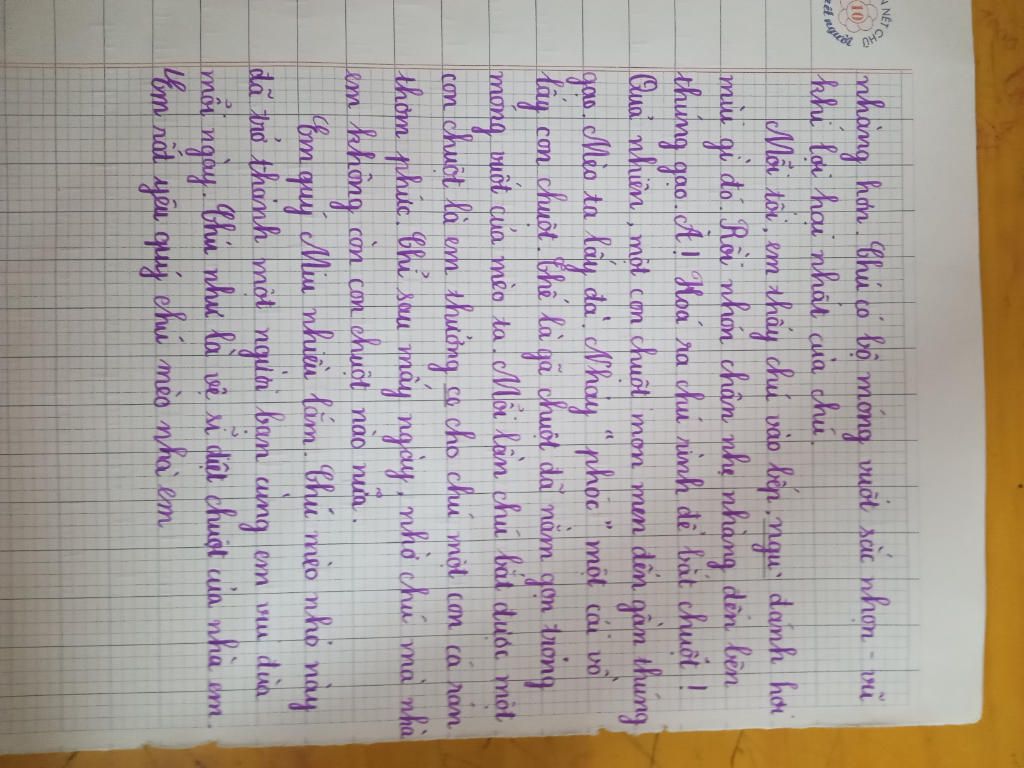 N NÉT CHỮ
10
nết người
nhàng hơn. Chú có bộ móng vuốt sắc nhọn - vũ
khí lợi hại nhất của chú.
Mỗi tối, em thấy chú vào bếp, ngửi đánh hơi
mùi gì đó. Rồi nhón chân nhẹ nhàng đến bên
thúng gạo. A! Hoá ra chú rình để bắt chuột!
Quả nhiên, một con chuột mon men đến gần thúng
gạo. Mèo ta lấy đà. Nhảy "phóc" một cái vồ
lấy con chuột. Thế là gã chuột đã nằm gọn trong
móng vuốt của mèo ta. Mỗi lần chú bắt được một
con chuột là em thưởng co cho chú một con cá rán
thơm phức. Chỉ sau mấy ngày, nhờ chú mà nhà
em không còn con chuột nào nữa.
Em quý Miu nhiều lắm. Chú mèo nhỏ này
đã trở thành một người bạn cùng em vui đùa
mỗi ngày. Chú như là vệ sĩ diệt chuột của nhà em.
Em rất yêu quý chú mèo nhà em